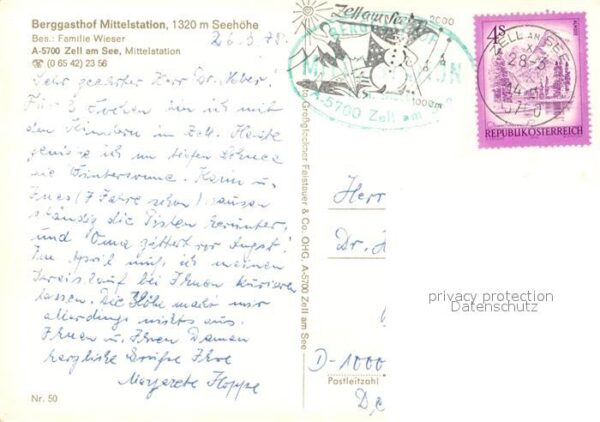 Berggasthof Mittelstation, 1320 m Seehöhe
Bes.: Familie Wieser
26.3.78
A-5700 Zell am See, Mittelstation
☎ (0 65 42) 23 56
Sehr geehrter Herr Dr.
Für 2 Wochen bin ich mit
den Kindern in Zell. Heute
genieße ich im tiefen Schnee
die Wintersonne. Karin u.
Ines (7 Jahre schon) sausen
ständig die Pisten herunter,
und Oma zittert vor Angst.
Im April muß ich meinen
Kreislauf bei Ihnen kurieren
lassen. Die Höhe macht mir
allerdings nichts aus.
Ihnen u. Ihren Damen
herzliche Grüße Ihre
Margarete Hoppe
Nr. 50
Großglockner Feistauer & Co. OHG, A-5700 Zell am See
Zell am See
2000
1000m
A-5700 Zell am
4S
REPUBLIK ÖSTERREICH
ZELL AM SEE
28.-3
5700
Herr
Dr.
privacy protection
Datenschutz
D-1000
Postleitzahl